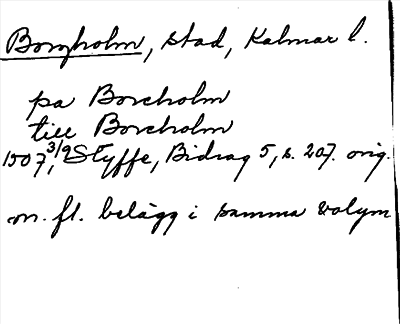 Borgholm, stad, Kalmar l.
pa Borcholm
till Borcholm
1507, 3/9 Styffe, Bidrag 5, s. 207. orig.
m. fl. belägg i samma volym